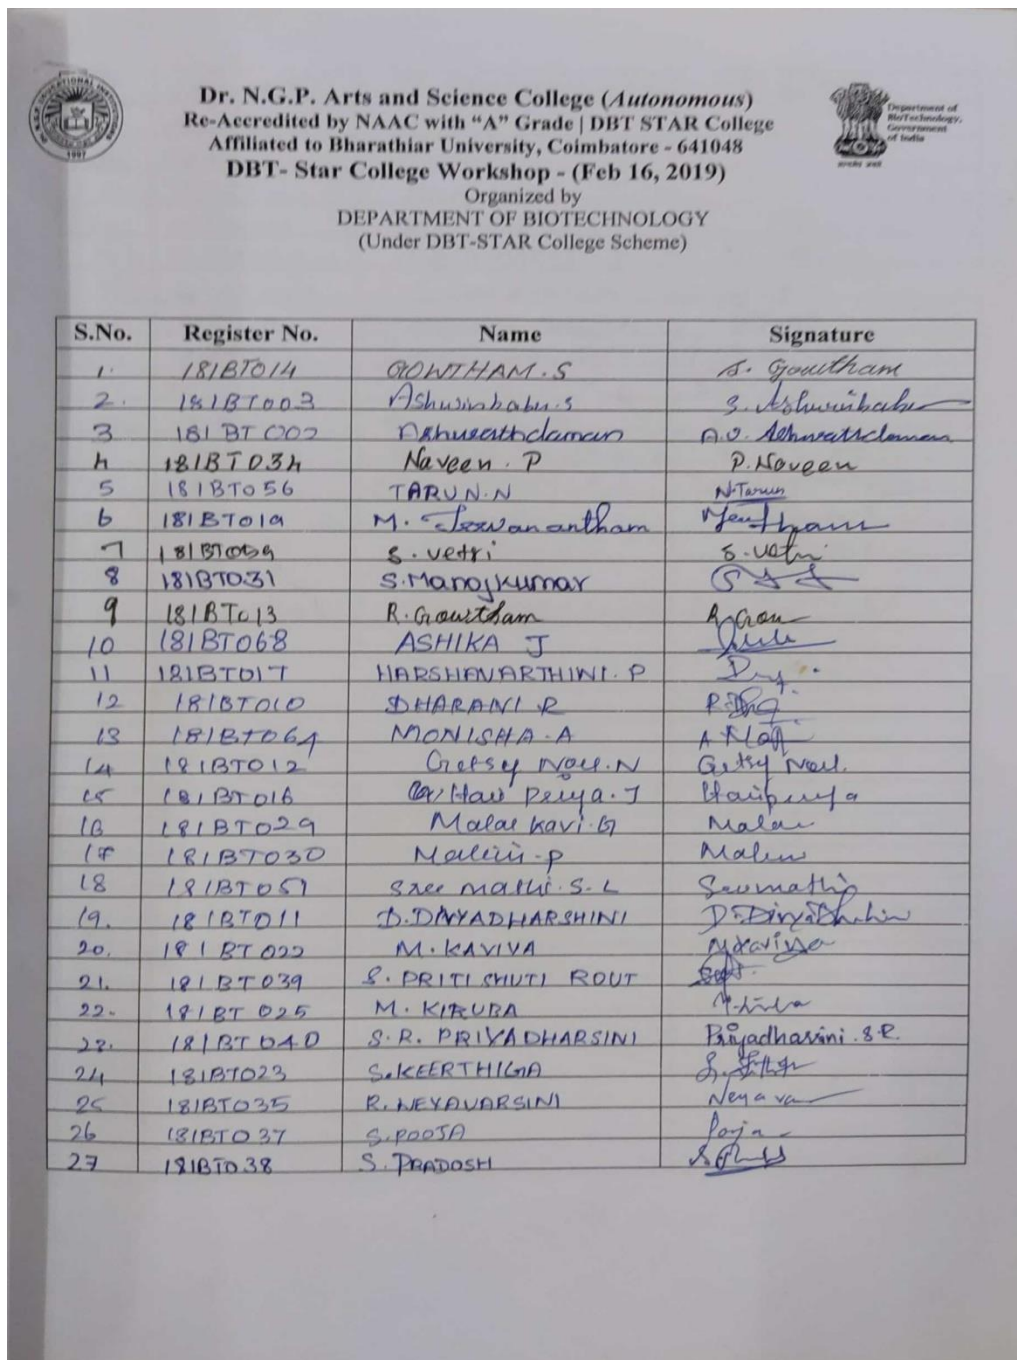 Dr. N.G.P. Arts and Science College (Autonomous)
Re-Accredited by NAAC with “A” Grade | DBT STAR College
Affiliated to Bharathiar University, Coimbatore - 641048
DBT- Star College Workshop - (Feb 16, 2019)
Organized by
DEPARTMENT OF BIOTECHNOLOGY
(Under DBT-STAR College Scheme)
1997
Department of
BioTechnology,
Government
of India
S.No. Register No. Name Signature
1. 181BT014 GOWTHAM.S S. Gowtham
2. 181BT003 Ashwinbabu.S S. Ashwinbabu
3 181BT002 Ashwathdaman A.V. Ashwathdaman
4 181BT034 Naveen.P P.Naveen
5 181BT056 TARUN.N N.Tarun
6 181BT019 M. Jeevanantham
7 S.Vetri S.Vetri
8 181BT031 S.Manojkumar
9 181BT013 R.Gowtham R.Gow
10 181BT068 ASHIKA J
11 181BT017 HARSHAVARTHINI.P
12 181BT010 DHARANI.R
13 181BT064 MONISHA.A
14 181BT012 Getsy Novl.N Getsy Novl.
15 181BT016 Hari Priya.J Haripriya
16 181BT029 Malar Kavi.G Malar
17 181BT030 Malini.P Malini
18 181BT051 Sree Mathi.S.L Sreemathi
19. 181BT011 D.DIVYADHARSHINI
20. 181BT022 M.KAVIYA M.Kaviya
21. 181BT039 S.PRITI SHUTI ROUT
22. 181BT025 M.KIRUBA
23. 181BT040 S.R.PRIYADHARSINI Priyadharsini.S.R.
24 181BT023 S.KEERTHIGA
25 181BT035 R.NEYAVARSINI Neyava
26 181BT037 S.POOJA Pooja
27 181BT038 S.PRADOSH